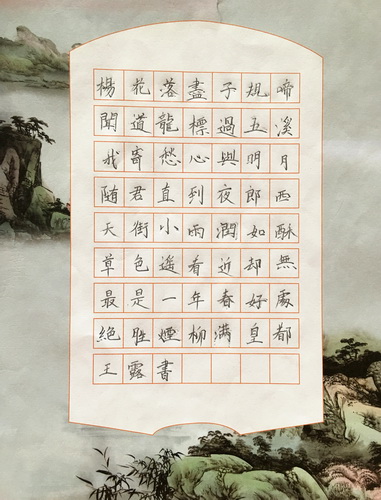 楊花落盡子規啼
聞道龍標過五溪
我寄愁心與明月
随君直到夜郎西
天街小雨潤如酥
草色遥看近却無
最是一年春好處
絕勝煙柳满皇都
王露書